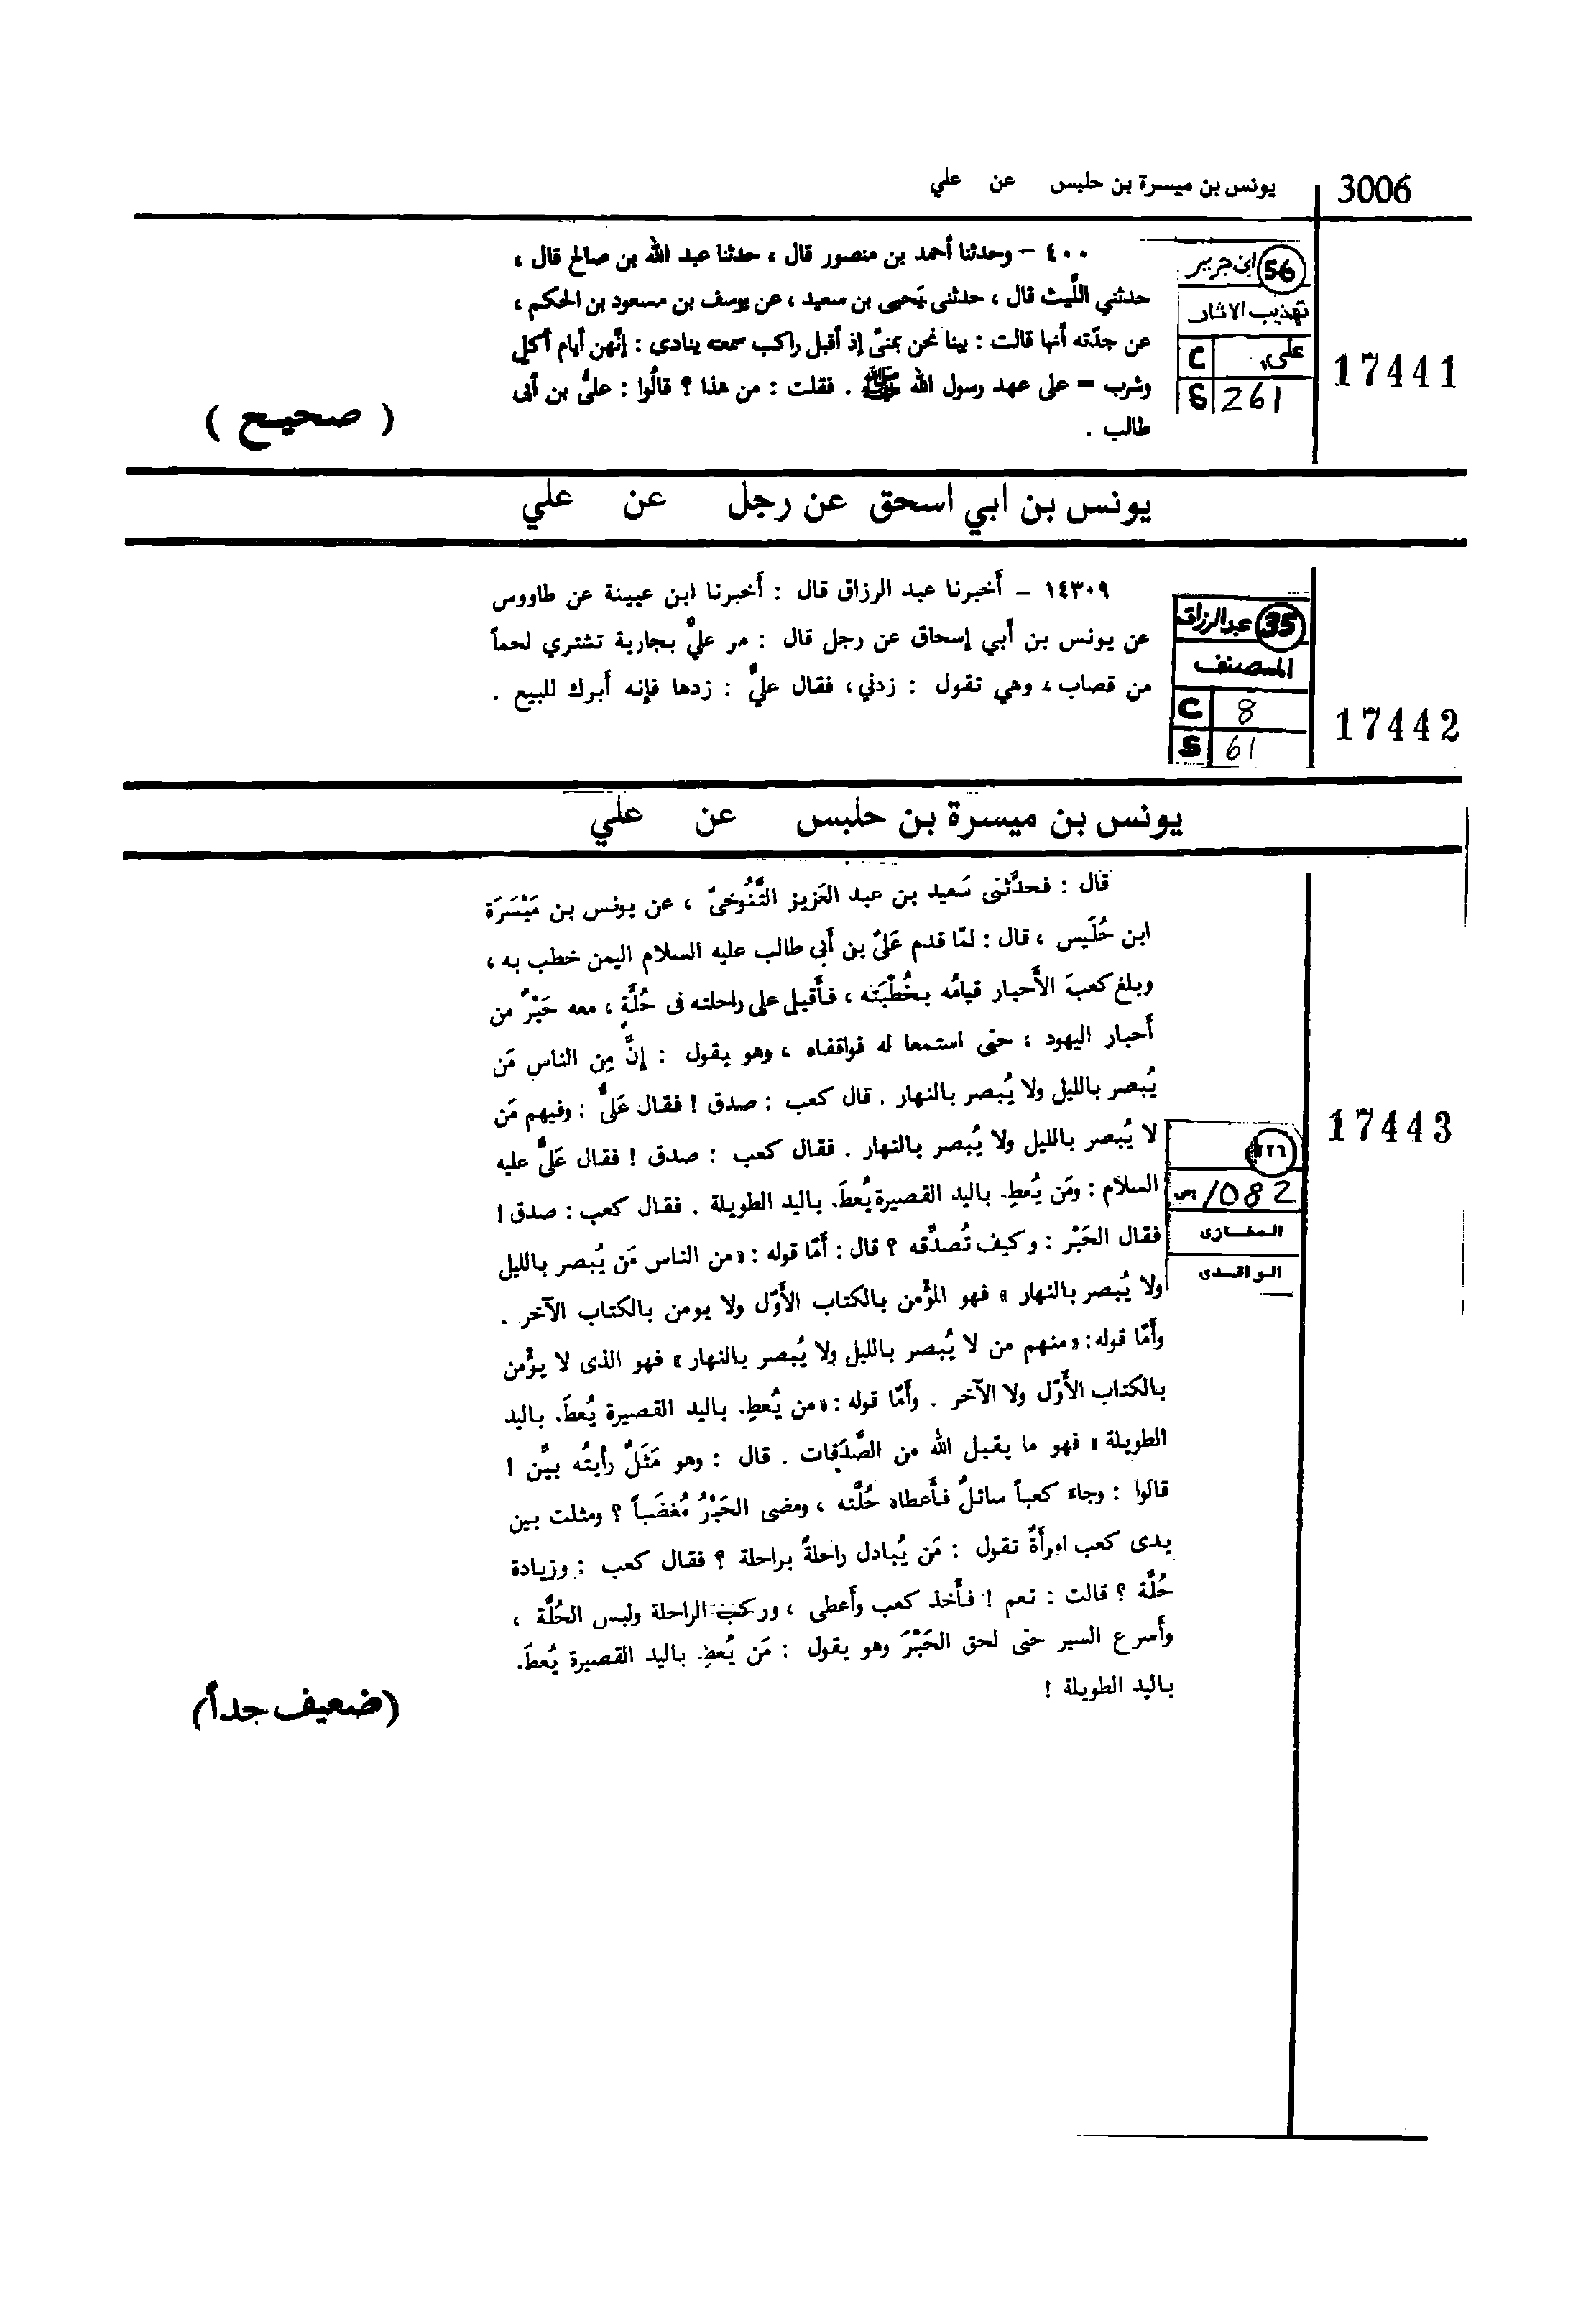 3006
يونس بن ميسرة بن حلبس عن علي
٤٠٠ – وحدثنا أحمد بن منصور قال ، حدثنا عبد الله بن صالح قال ،
حدثني اللَّيث قال ، حدثنى يَحيى بن سعيد ، عن يوسف بن مسعود بن الحكم ،
عن جدّته أنها قالت : بينا نحن بمنىً إذ أقبل راكب سمعته ينادى : إنَّهن أيام أكلٍ
وشرب = على عهد رسول الله ﷺ . فقلت : من هذا ؟ قالُوا : علىُّ بن أبى
طالب .
( صحيح )
56 ابن جرير
تهذيب الاثار
علي
C
S 261
17441
يونس بن ابي اسحق عن رجل عن علي
١٤٣٠٩ – أَخبرنا عبد الرزاق قال : أَخبرنا ابن عيينة عن طاووس
عن يونس بن أَبي إسحاق عن رجل قال : مر عليٌّ بجارية تشتري لحماً
من قصاب ، وهي تقول : زدني ، فقال عليٌّ : زدها فإنه أَبرك للبيع .
35 عبدالرزاق
المصنف
C 8
S 61
17442
يونس بن ميسرة بن حلبس عن علي
قال : فحدَّثنى سَعيد بن عبد العَزيز التَّنُوخىّ ، عن يونس بن مَيْسَرَة
ابن حُلَيس ، قال : لمّا قدم عَلىّ بن أَبى طالب عليه السلام اليمن خطب به ،
وبلغ كعبَ الأَحبار قيامُه بخُطْبَته ، فأَقبل على راحلته فى حُلَّةٍ ، معه حَبْرٌ من
أَحبار اليهود ، حتى استمعا له فواقفاه ، وهو يقول : إنَّ مِن الناس مَن
يُبصر بالليل ولا يُبصر بالنهار . قال كعب : صدق ! فقال عَلىٌّ : وفيهم مَن
لا يُبصر بالليل ولا يُبصر بالنهار . فقال كعب : صدق ! فقال عَلىٌّ عليه
السلام : ومَن يُعطِ باليد القصيرة يُعطَ باليد الطويلة . فقال كعب : صدق !
فقال الحَبْر : وكيف تُصدِّقه ؟ قال : أَمّا قوله : «من الناس مَن يُبصر بالليل
ولا يُبصر بالنهار» فهو المؤمن بالكتاب الأَوّل ولا يومن بالكتاب الآخر .
وأَمّا قوله : «منهم من لا يُبصر بالليل ولا يُبصر بالنهار» فهو الذى لا يؤمن
بالكتاب الأَوّل ولا الآخر . وأَمّا قوله : «من يُعطِ باليد القصيرة يُعطَ باليد
الطويلة» فهو ما يقبل الله من الصَّدَقات . قال : وهو مَثَلٌ رأَيتُه بيِّن !
قالوا : وجاء كعباً سائلٌ فأَعطاه حُلَّته ، ومضى الحَبْرُ مُغضَباً ؟ ومثلت بين
يدى كعب امرأَةٌ تقول : مَن يُبادل راحلةً براحلة ؟ فقال كعب : وزيادة
حُلَّة ؟ قالت : نعم ! فأَخذ كعب وأَعطى ، وركب الراحلة ولبس الحُلَّة ،
وأَسرع السير حتى لحق الحَبْرَ وهو يقول : مَن يُعطِ باليد القصيرة يُعطَ
باليد الطويلة !
(ضعيف جداً)
٢٢٦
1082 ص
المغازى
الواقدى
17443